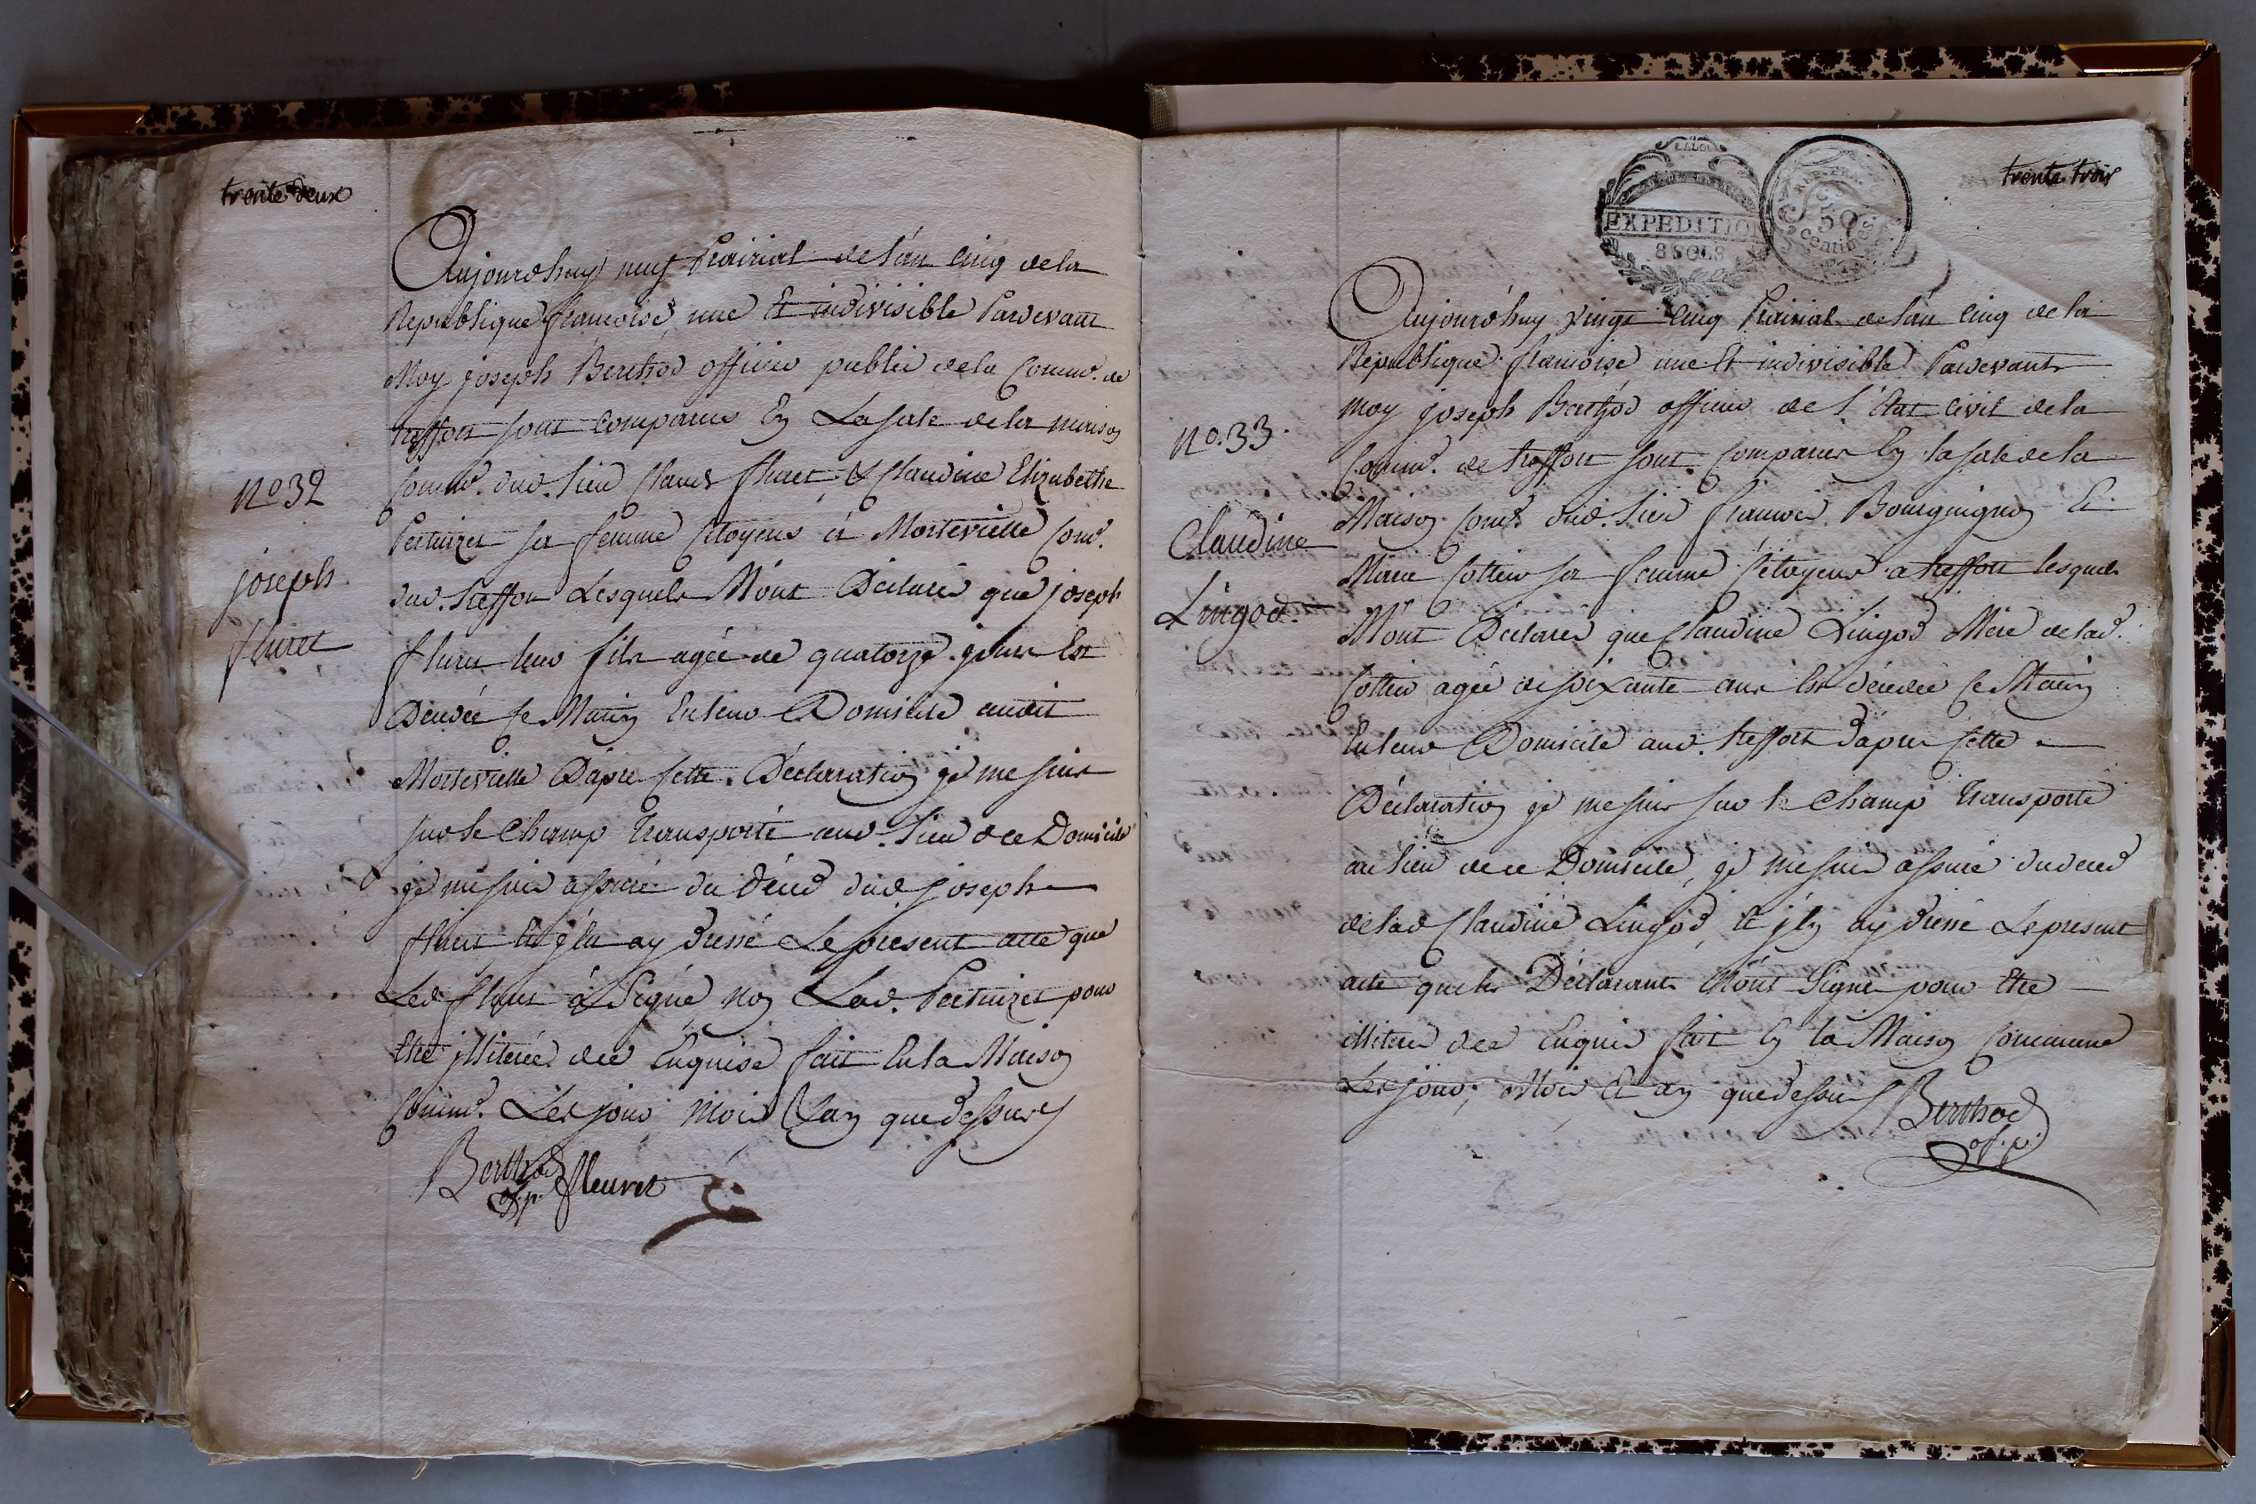 trente deux
Aujourdhuy neuf Prairial de l'an Cinq de la
Republique françoise, une Et indivisible Pardevant
Moy joseph Berthod officier public de la Comm.e de
treffort sont comparus En La sale de la maison
Comm.e dud. Lieu Claude fluret & Claudine Elizabethe
Pertuizet sa femme Citoyens à Montevielle Com.e
dud. treffort Lesquels M'ont Déclarés que joseph
fluret leur fils agée de quatorze jours Est
Decedée Ce Matin En leur Domicile audit
Montevielle Dapre Cette Déclaration je me suis
sur le Champ Transporté aud. Lieu de ce Domicile
je me suis assuré du décé dud. joseph
fluret Et j'en ay Dressé Le present acte que
Led. fluret à Signé, non Lad. Pertuizet pour
Etre jlliterée de ce Enquise fait En la Maison
Comm.e Les jour mois & an que dessus
Berthod
of. p. fleuret
no 32
joseph
fluret
LALOI
EXPEDITION
8 SOLS
REP. FRA.
50
Centimes
trente trois
Aujourd'huy vingt Cinq Prairial de l'an Cinq de la
Republique françoise une Et indivisible Pardevant
moy joseph Berthod officier de l'État civil de la
Comm.e de treffort sont Comparus En la sale de la
Maison Com.e dud. Lieu françois Bourguignon Et
Marie Cottin sa femme Citoyens a treffort lesquels
M'ont Déclarés que Claudine Lingod Mère de lad.
Cottin agée de soixante ans Est décedée Ce Matin
En leur Domicile aud. treffort Dapres Cette
Déclaration je me suis sur le Champ Transporté
au lieu de ce Domicile, je me suis assuré du deced
de lad Claudine Lingod, Et j'En ay dressé Le present
acte que les Déclarants N'ont Signé pour Etre
illiteres de ce Enquis fait En la Maison Commune
Les jour, Mois Et an que dessus Berthod
of. p.
no. 33.
Claudine
Lingod